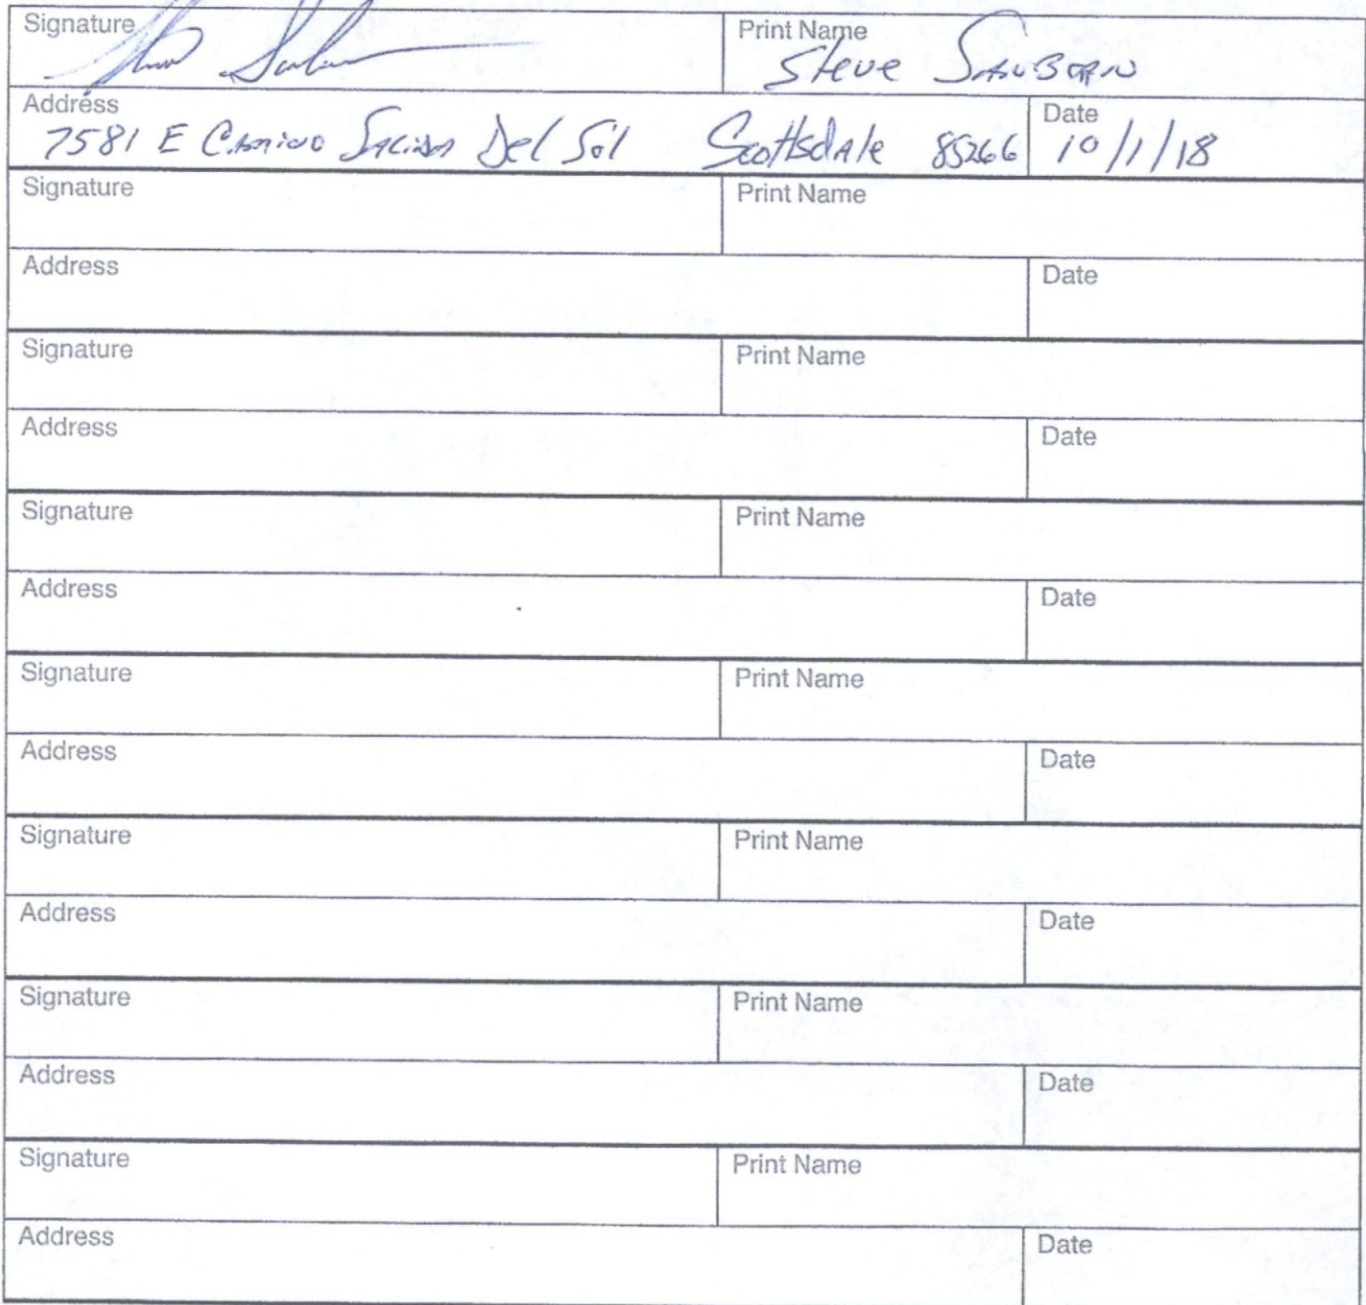 Signature Print Name
Steve Sanborn
Address Date
7581 E Camino Salida Del Sol Scottsdale 85266 10/1/18
Signature Print Name
Address Date
Signature Print Name
Address Date
Signature Print Name
Address Date
Signature Print Name
Address Date
Signature Print Name
Address Date
Signature Print Name
Address Date
Signature Print Name
Address Date